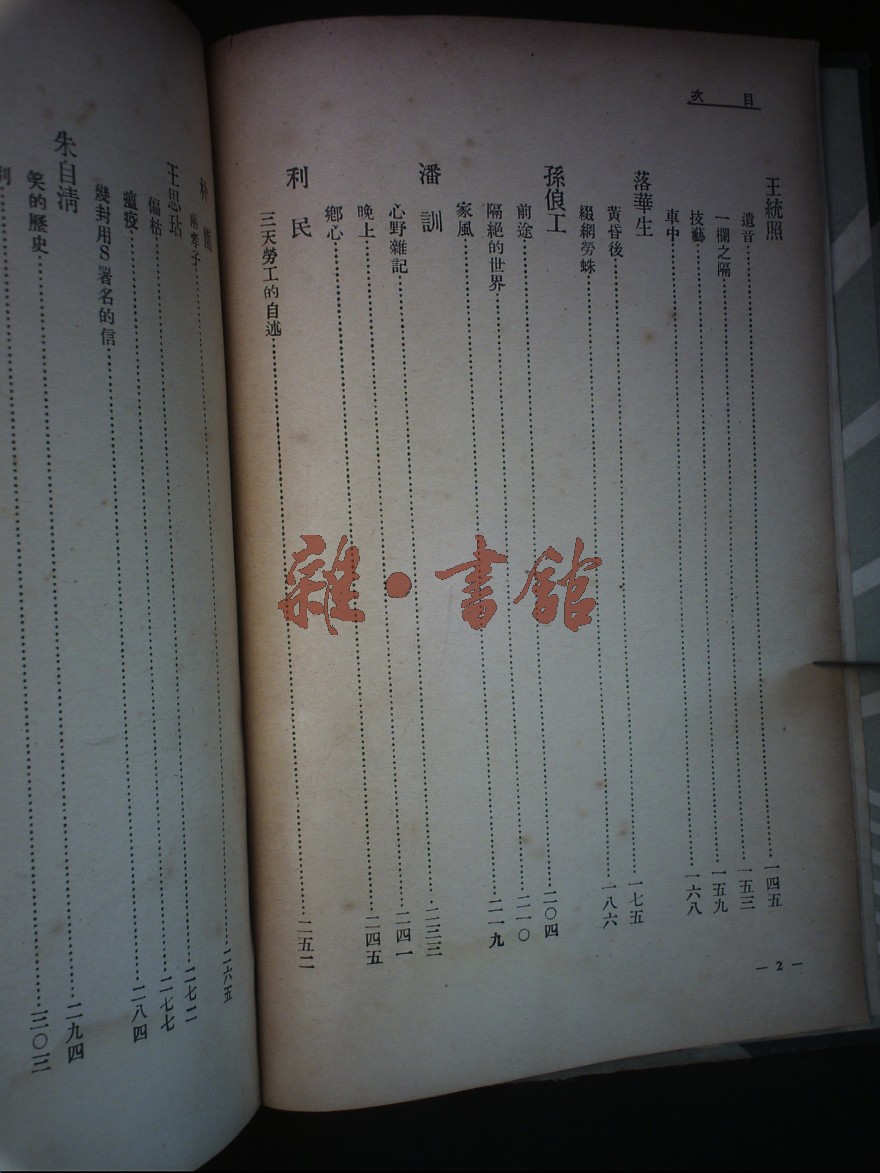 目次
王統照
遺音……一四五
一欄之隔……一五三
技藝……一五九
車中……一六八
落華生
黃昏後……一七五
綴網勞蛛……一八六
孫俍工
前途……二〇四
隔絕的世界……二一〇
家風……二一九
潘訓
心野雜記……二三三
晚上……二四一
鄉心……二四五
利民
三天勞工的自述……二五二
— 2 —
朴園
兩孝子……二六五
王思玷
偏枯……二七二
瘟疫……二七七
幾封用S署名的信……二八四
朱自清
笑的歷史……二九四
別……三〇三
雜·書館